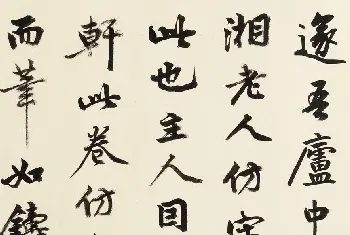 遂吾廬中
湘老人仿宋
此也主人目
軒此卷仿
而筆如鐵